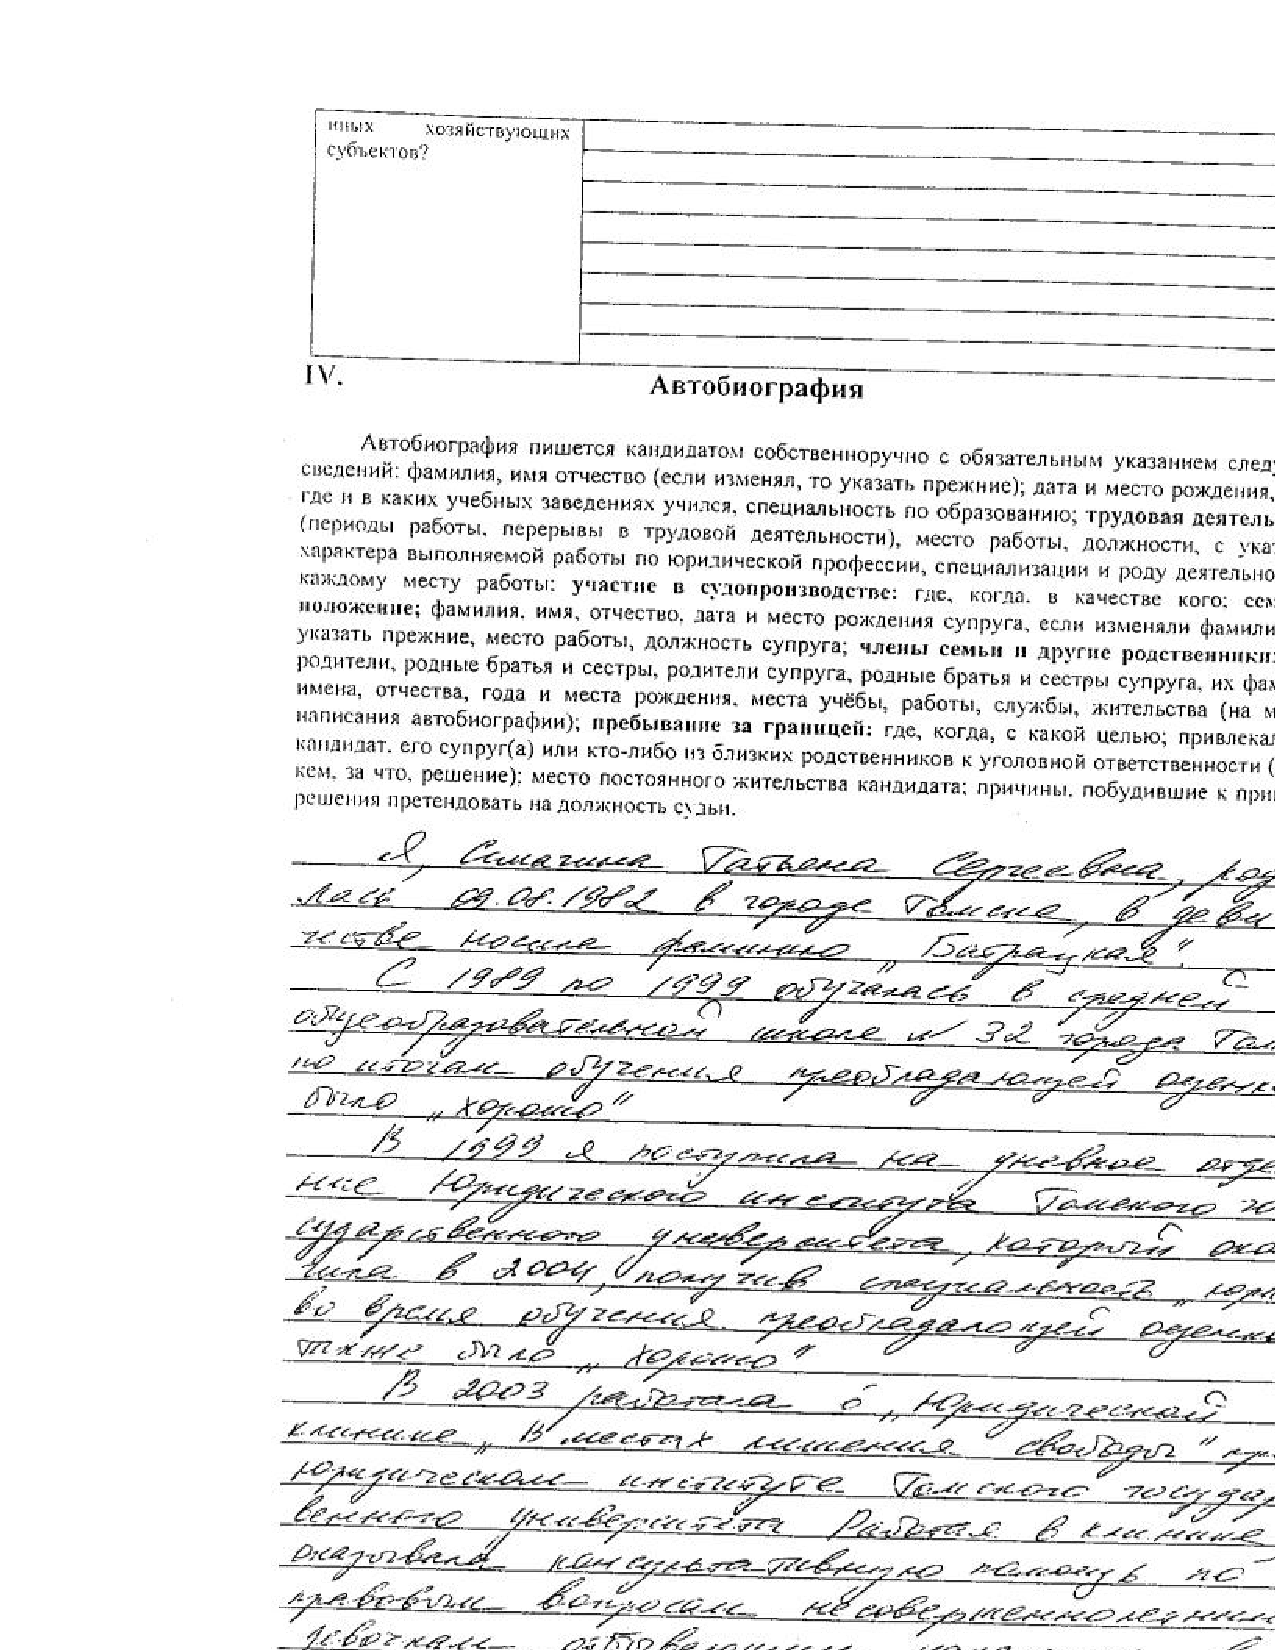 иных хозяйствующих
субъектов?
IV.
Автобиография
Автобиография пишется кандидатом собственноручно с обязательным указанием след
сведений: фамилия, имя отчество (если изменял, то указать прежние); дата и место рождения,
где и в каких учебных заведениях учился, специальность по образованию; трудовая деятель
(периоды работы, перерывы в трудовой деятельности), место работы, должности, с ука
характера выполняемой работы по юридической профессии, специализации и роду деятельно
каждому месту работы: участие в судопроизводстве: где, когда, в качестве кого; сем
положение; фамилия, имя, отчество, дата и место рождения супруга, если изменяли фамили
указать прежние, место работы, должность супруга; члены семьи и другие родственники:
родители, родные братья и сестры, родители супруга, родные братья и сестры супруга, их фам
имена, отчества, года и места рождения, места учёбы, работы, службы, жительства (на м
написания автобиографии); пребывание за границей: где, когда, с какой целью; привлекал
кандидат, его супруг(а) или кто-либо из близких родственников к уголовной ответственности (
кем, за что, решение); место постоянного жительства кандидата; причины, побудившие к при
решения претендовать на должность судьи.
Я, Симагина Татьяна Сергеевна, род
лась 09.08.1982 в городе Томске, в деви
честве носила фамилию „Батрацкая".
С 1989 по 1999 обучалась в средней
общеобразовательной школе № 32 города Том
по итогам обучения преобладающей оценк
было „хорошо"
В 1999 я поступила на дневное отде
ние Юридического института Томского го
сударственного университета, который око
чила в 2004, получив специальность „юри
во время обучения преобладающей оценк
также было „хорошо"
В 2003 работала в „Юридической
клинике „В местах лишения свободы" при
юридическом институте Томского государ
венного университета Работая в клинике
оказывала консультативную помощь по
правовым вопросам несовершеннолетним
девочкам